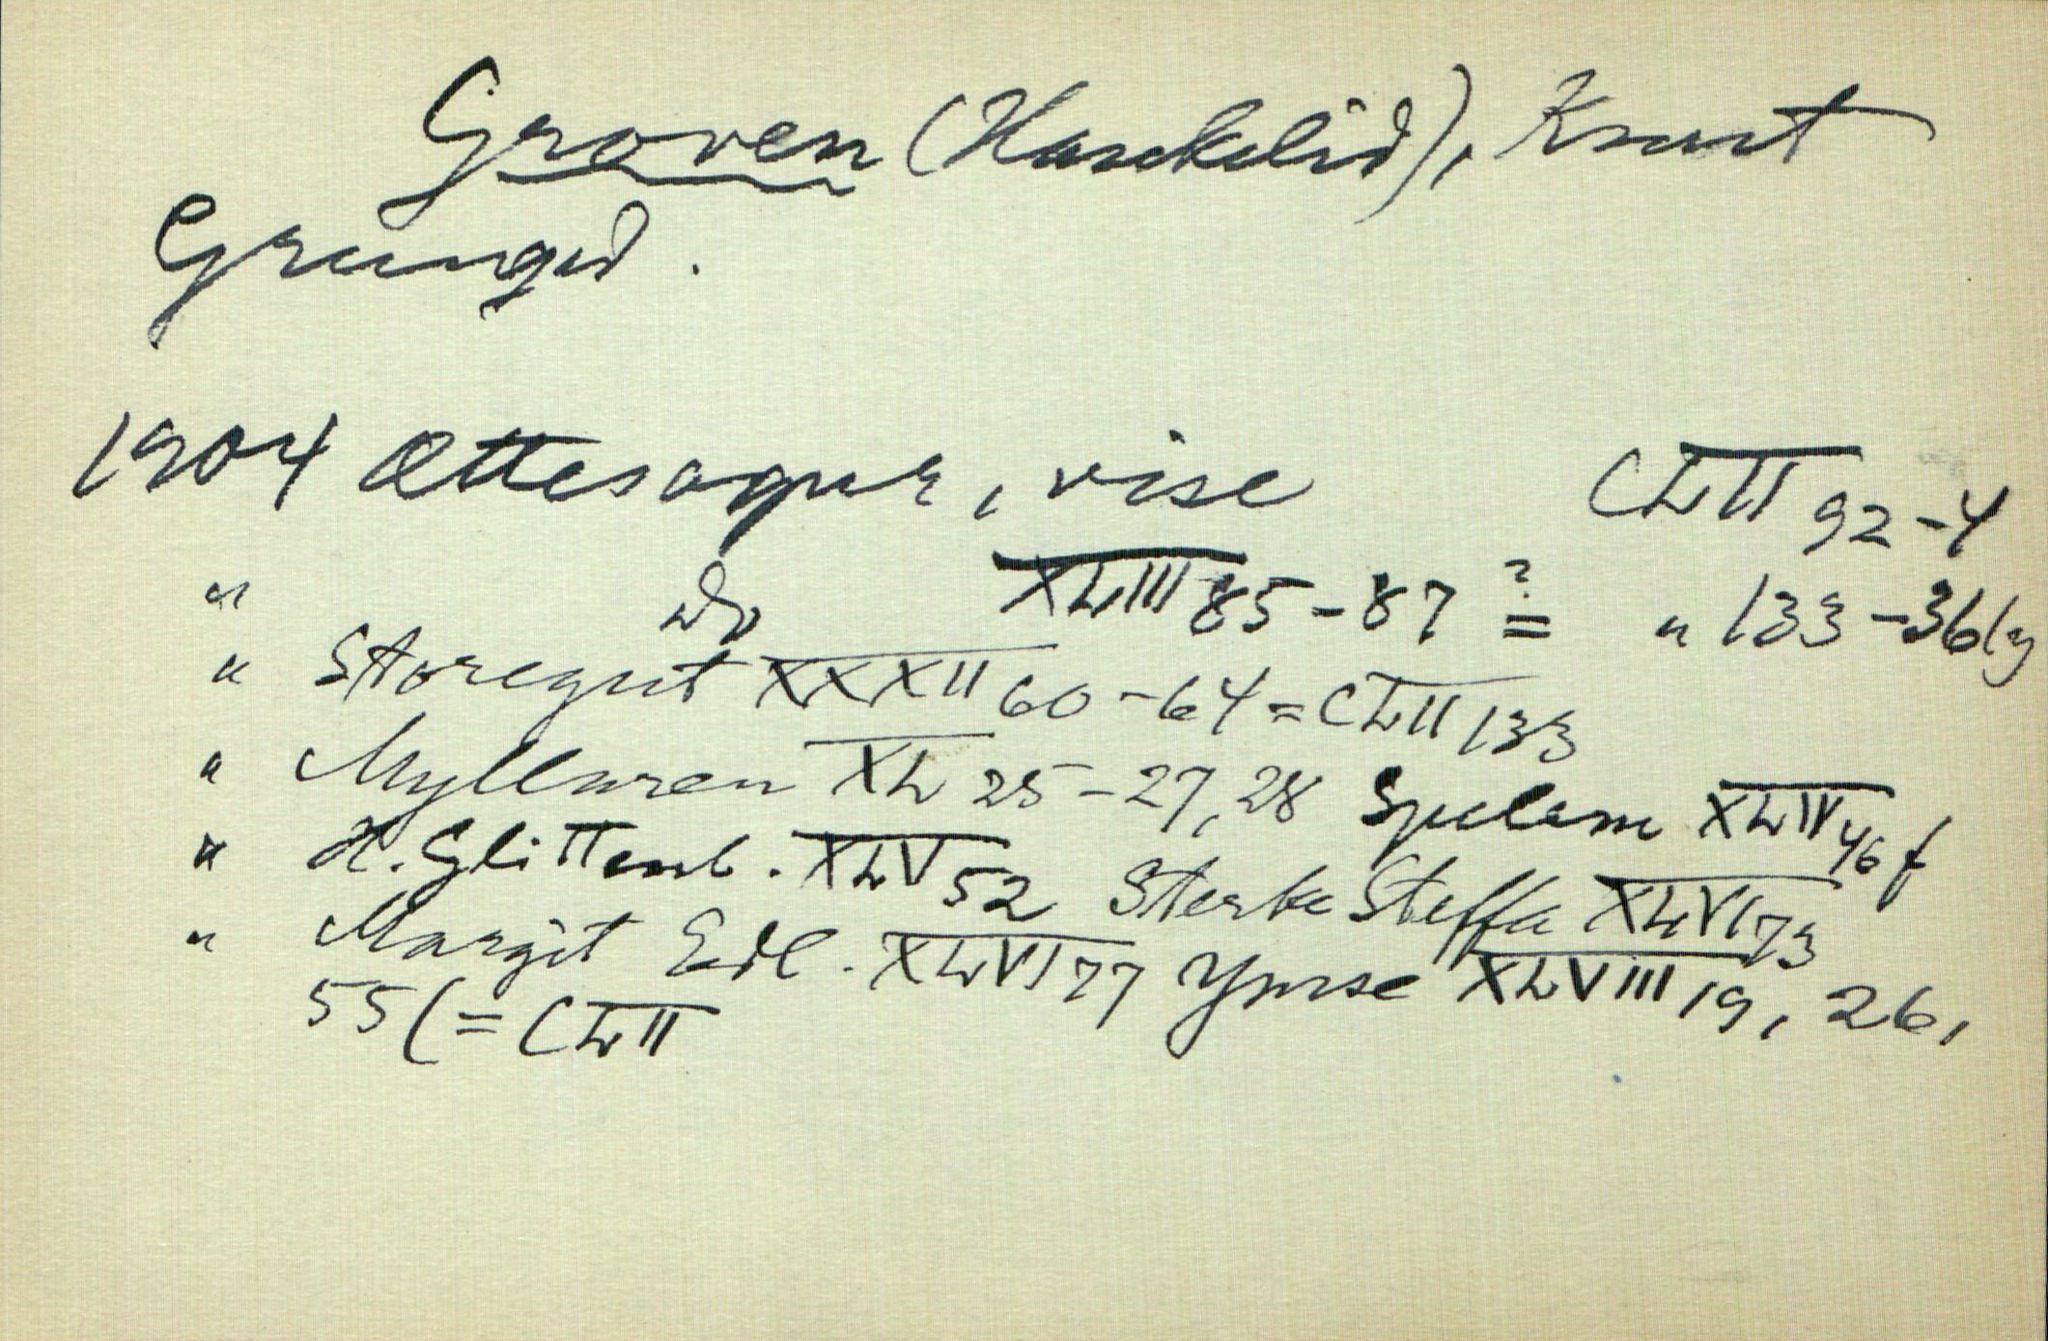 Groven (Haukelid), Knut
Grungед.
1904 Ættesogur, vise CLII 92-4
" Do XLIII 85-87 ?= " 133-36 (y
" Storegut XXXII 60-64 = CLII 133
" Myllaren XL 25-27, 28 Spelem XLIV 46 f
" H. Glittenb. XLV 52 Sterke Steffa XLVI 73
" Margit Edl. XLVI 77 Ymse XLVIII 19, 26,
55 (= CLII